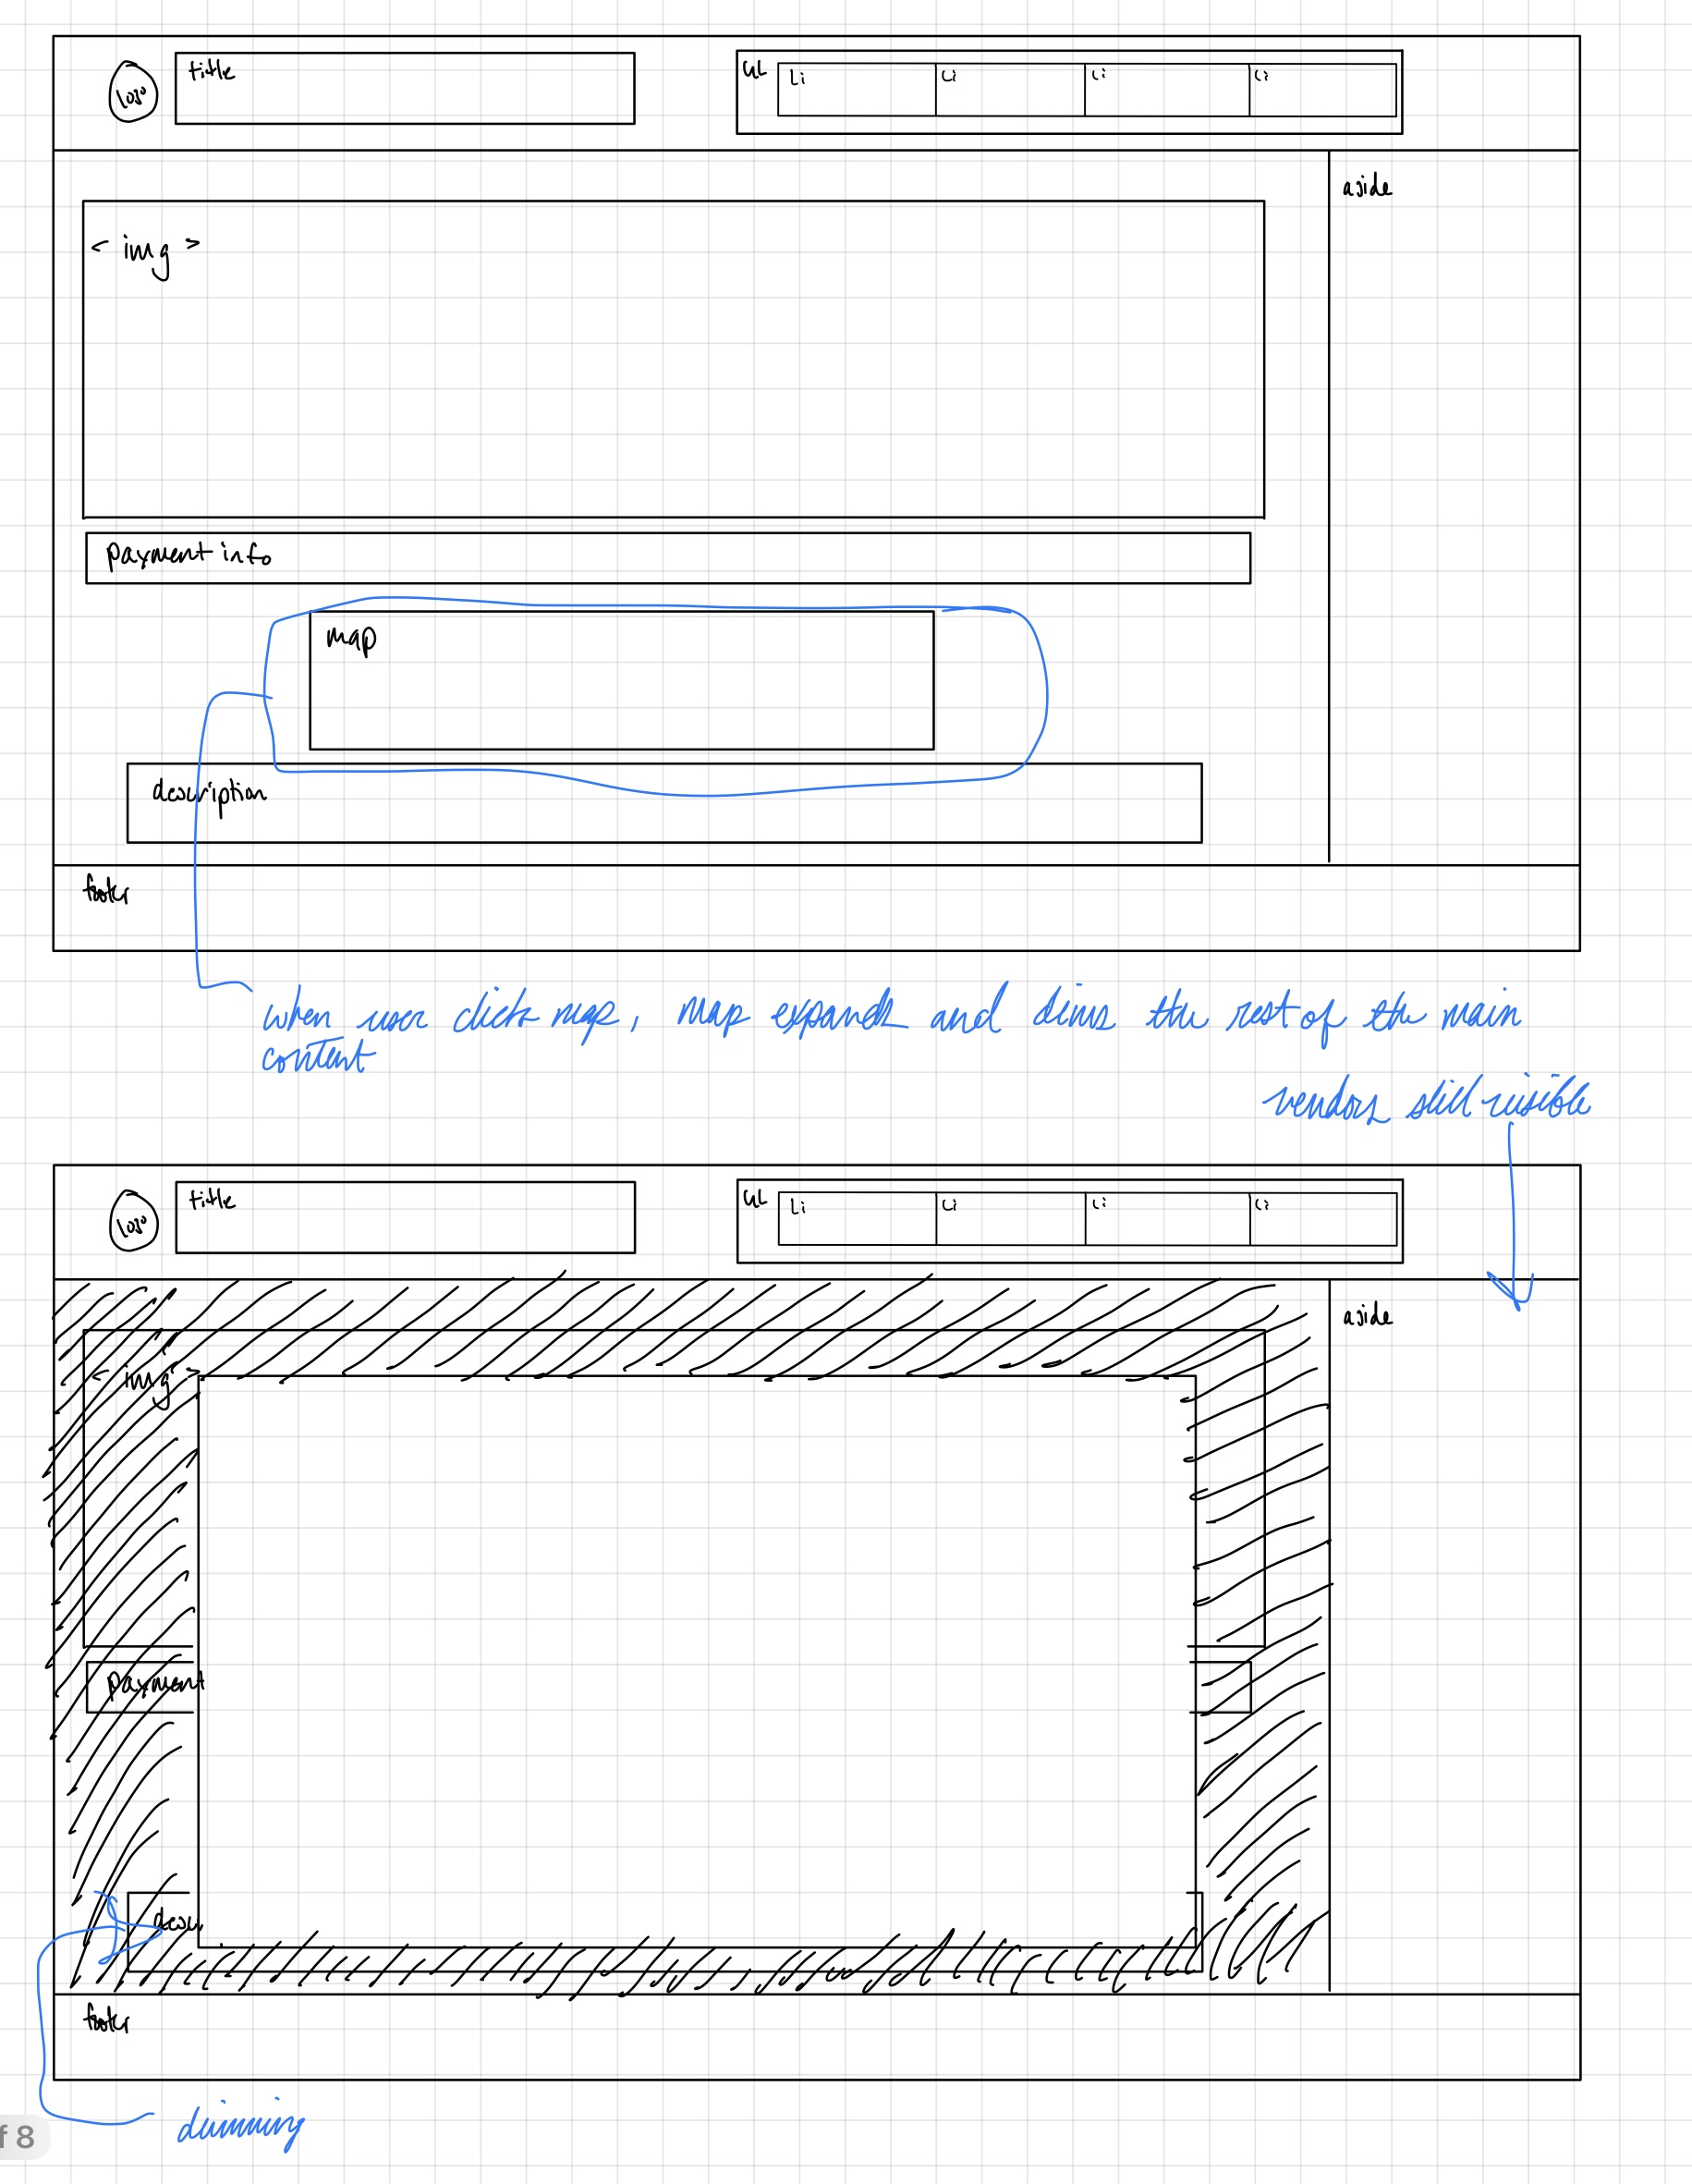 logo
title
UL
Li
Li
Li
Li
aside
< img >
payment info
map
description
footer
when user clicks map, map expands and dims the rest of the main
content
vendors still visible
logo
title
UL
Li
Li
Li
Li
aside
< img >
payment
desc
footer
dimming
f 8